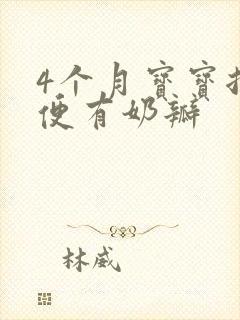 4个月宝宝拉
便有奶瓣
林威